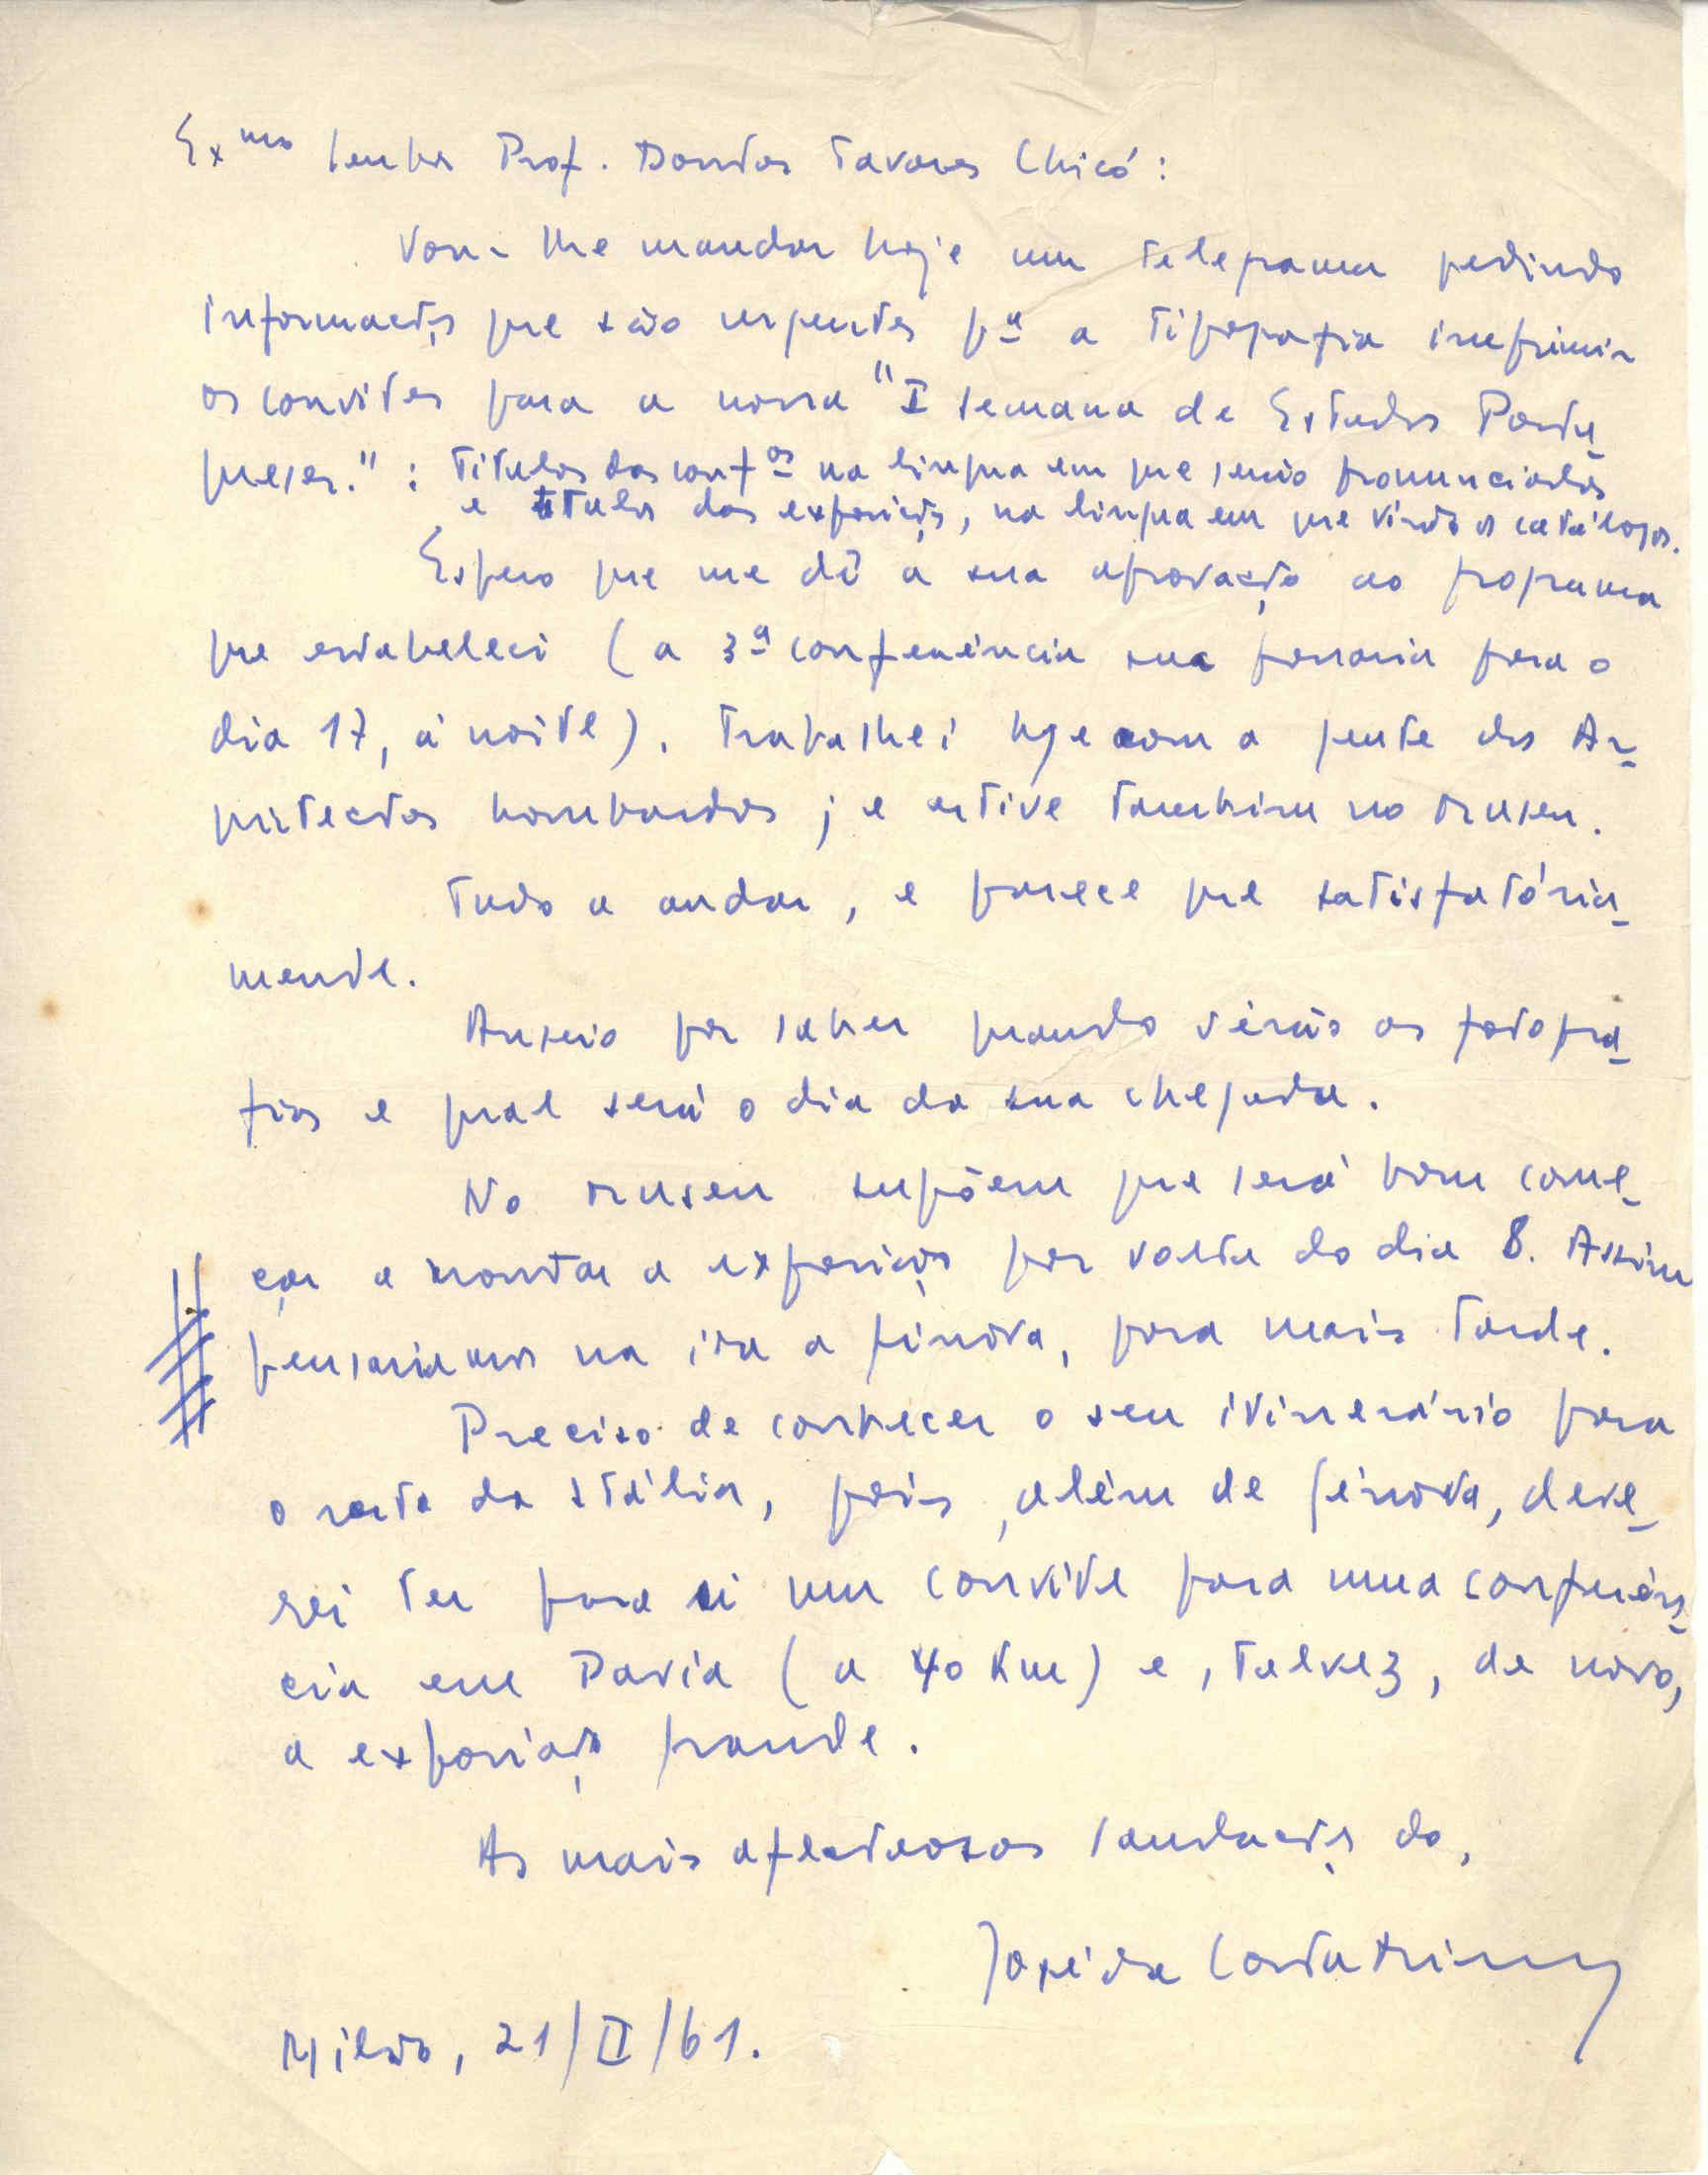 Exmo Senhor Prof. Doutor Tavares Chicó:
Vou-lhe mandar hoje um telegrama pedindo
informações que são urgentes pª a tipografia imprimir
os convites para a nossa "I Semana de Estudos Portu-
gueses.": Títulos das confas na língua em que serão pronunciadas
e títulos das exposições, na língua em que virão os catálogos.
Espero que me dê a sua aprovação ao programa
que estabeleci (a 3ª conferência sua passaria para o
dia 17, à noite). Trabalhei hoje com a gente dos Ar-
quitectos Lombardos; e estive também no Museu.
Tudo a andar, e parece que satisfatória-
mente.
Anseio por saber quando virão as fotogra-
fias e qual será o dia da sua chegada.
No Museu supõem que será bom come-
çar a montar a exposição por volta do dia 8. Assim
pensaríamos na ida a Génova, para mais tarde.
Preciso de conhecer o seu itinerário para
o resto da Itália, pois, além de Génova, deve-
rei ter para si um convite para uma conferên-
cia em Pavia (a 40 Km) e, talvez, de novo,
a exposição grande.
As mais afectuosas saudações do,
José da Costa Miranda
Milão, 21/II/61.